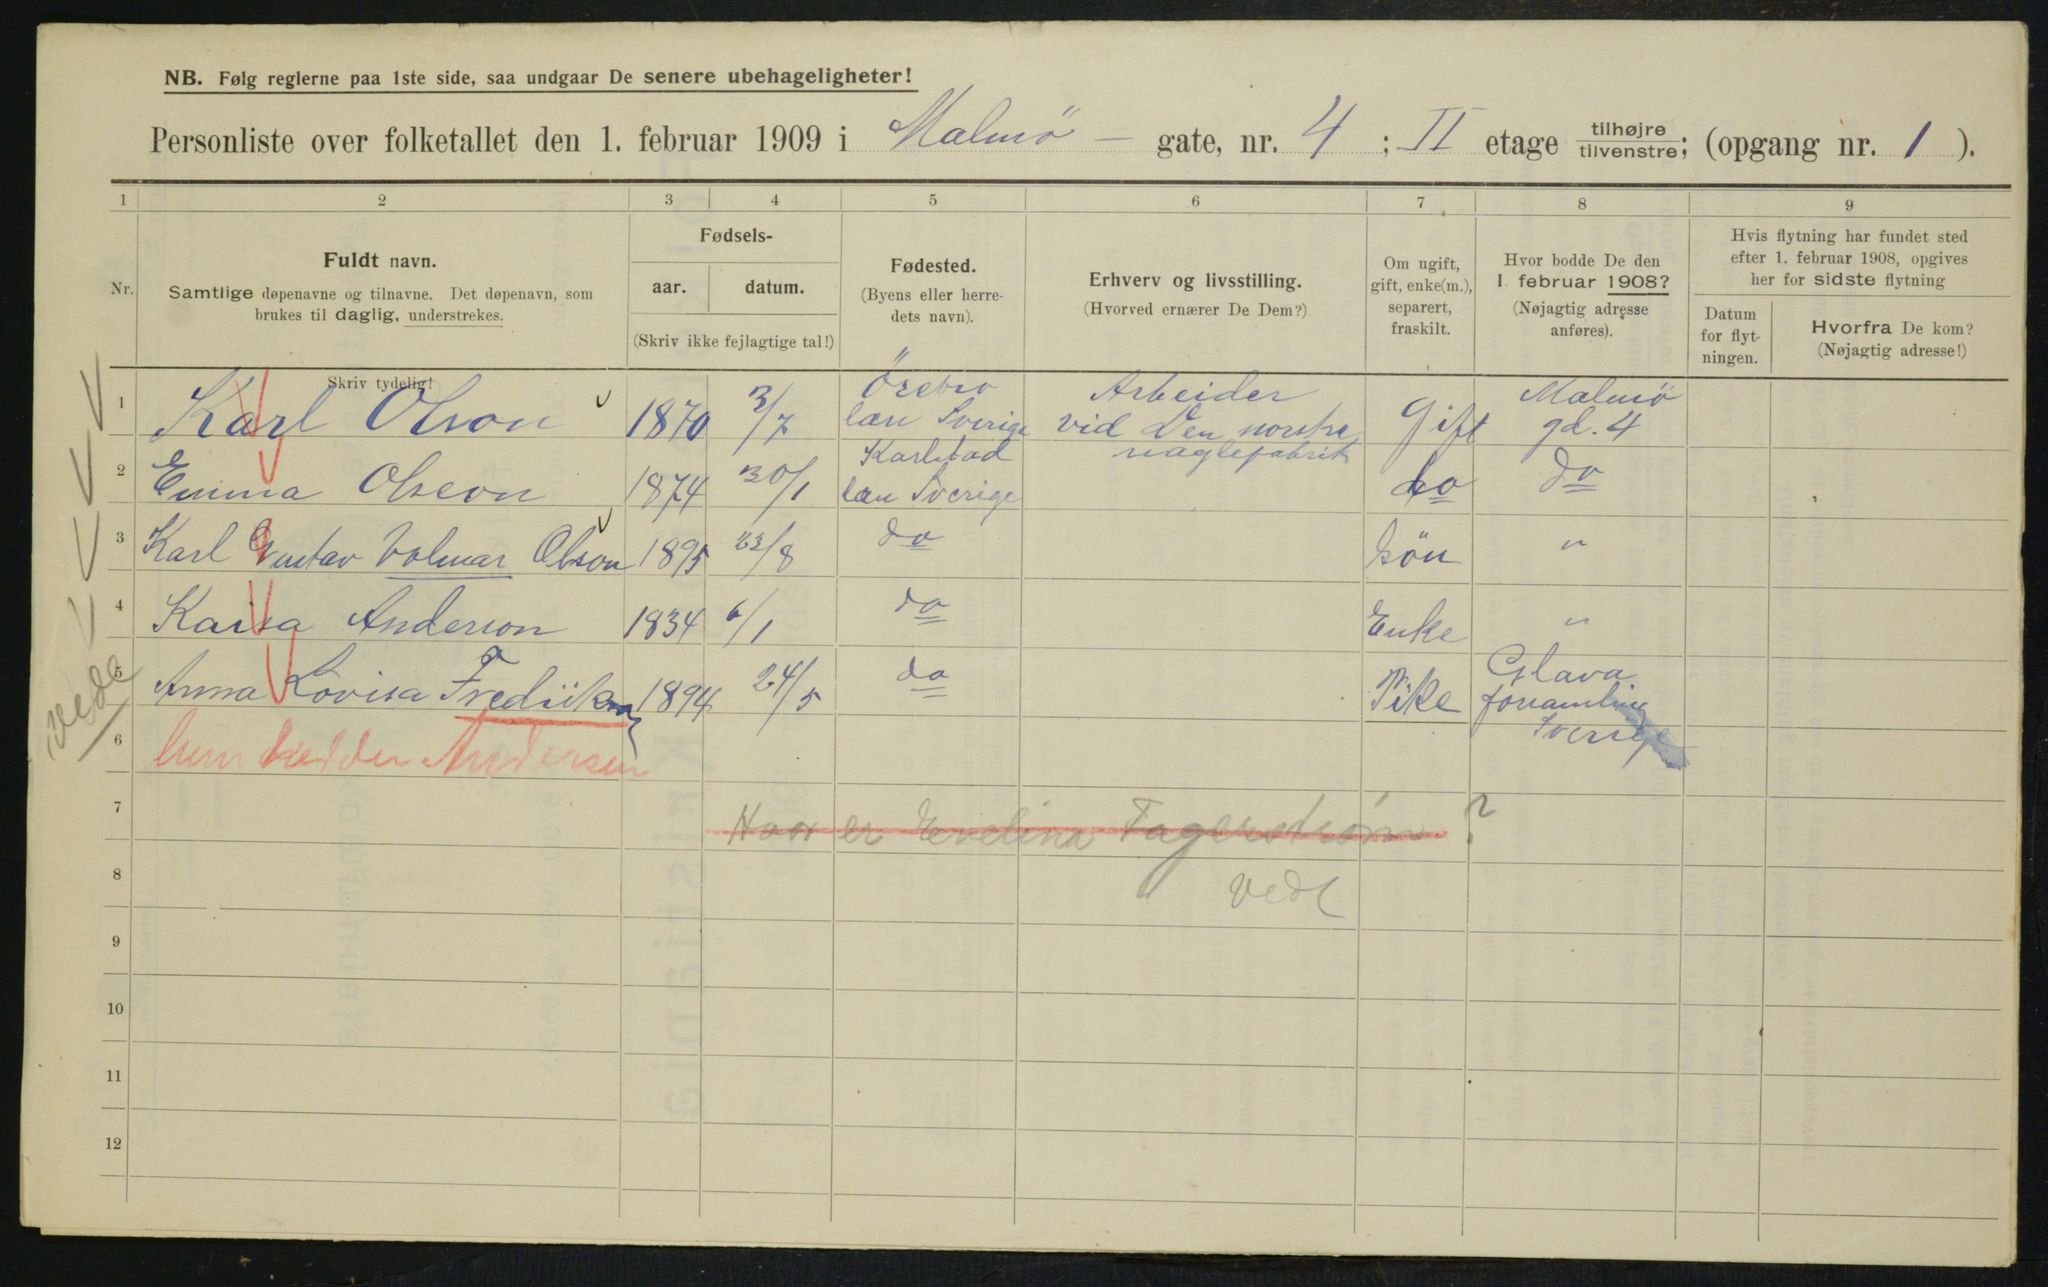 NB. Følg reglerne paa 1ste side, saa undgaar De senere ubehageligheter!
Personliste over folketallet den 1. februar 1909 i Malmö – gate, nr. 4 ; II etage tilhøjre tilvenstre; (opgang nr. 1 ).
1 2 3 4 5 6 7 8 9
Nr.
Fuldt navn.
Samtlige døpenavne og tilnavne. Det døpenavn, som
brukes til daglig, understrekes.
Skriv tydelig!
Fødsels-
aar. datum.
(Skriv ikke fejlagtige tal!)
Fødested.
(Byens eller herre-
dets navn).
Erhverv og livsstilling.
(Hvorved ernærer De Dem?)
Om ugift,
gift, enke(m.),
separert,
fraskilt.
Hvor bodde De den
1. februar 1908?
(Nøjagtig adresse
anføres).
Hvis flytning har fundet sted
efter 1. februar 1908, opgives
her for sidste flytning
Datum
for flyt-
ningen.
Hvorfra De kom?
(Nøjagtig adresse!)
1 Karl Olson 1870 3/7 Örebro län Sverige Arbeider vid Den norske naglefabrik Gift Malmö gd. 4
2 Emma Olson 1874 30/1 Karlstad län Sverige do do
3 Karl Gustav Volmar Olson 1895 23/8 do Sön "
4 Kaisa Anderson 1834 6/1 do Enke "
5 Anna Lovisa Fredrikson 1894 24/5 do Pike Glava församling Sverige
vede
6 hun hedder Andersen
7 Hvor er Evelina Fagerstrøm ?
8 vede
9
10
11
12